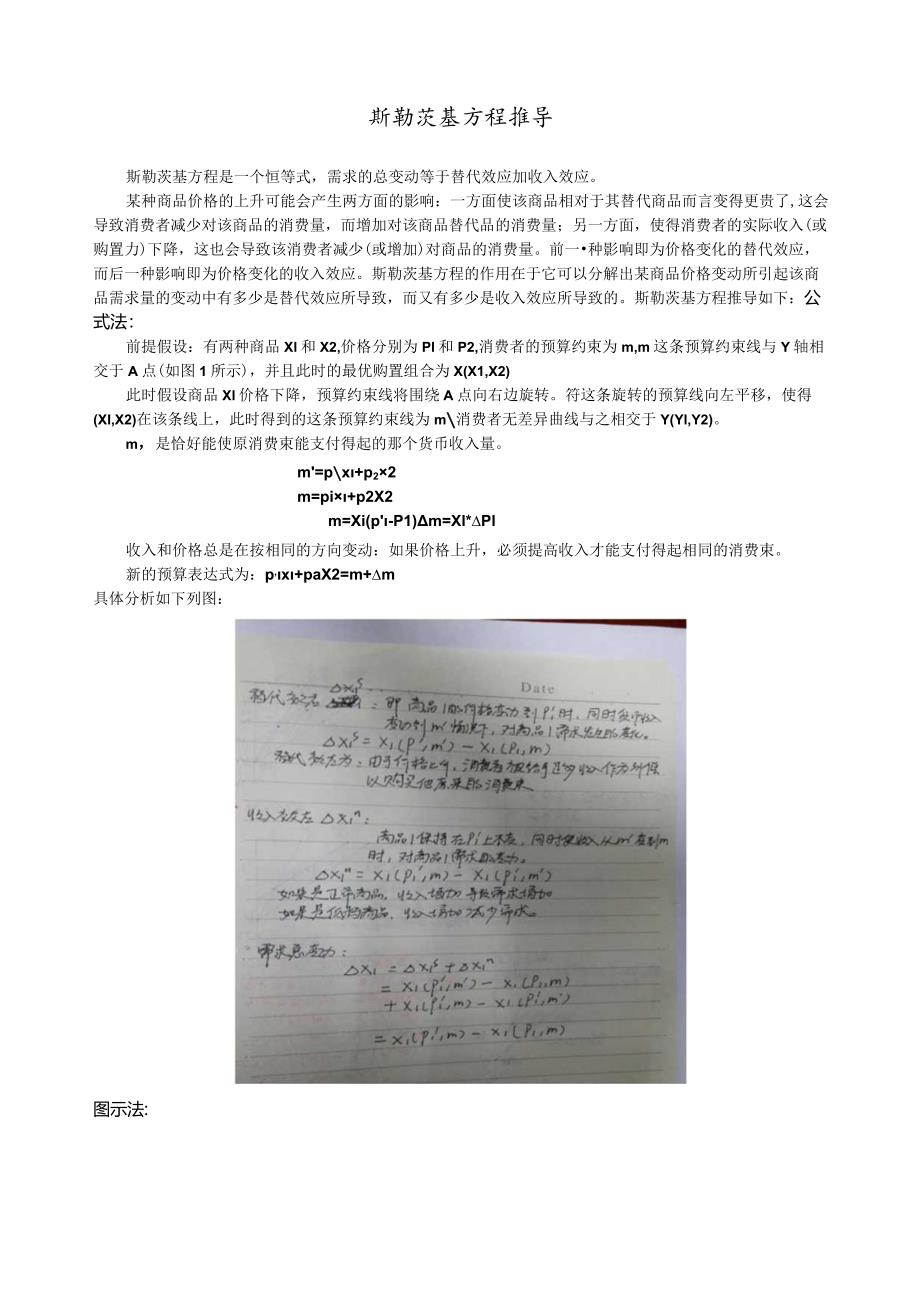 斯勒茨基方程推导
斯勒茨基方程是一个恒等式，需求的总变动等于替代效应加收入效应。
某种商品价格的上升可能会产生两方面的影响：一方面使该商品相对于其替代商品而言变得更贵了,这会
导致消费者减少对该商品的消费量，而增加对该商品替代品的消费量；另一方面，使得消费者的实际收入(或
购置力)下降，这也会导致该消费者减少(或增加)对商品的消费量。前一•种影响即为价格变化的替代效应，
而后一种影响即为价格变化的收入效应。斯勒茨基方程的作用在于它可以分解出某商品价格变动所引起该商
品需求量的变动中有多少是替代效应所导致，而又有多少是收入效应所导致的。斯勒茨基方程推导如下：公
式法：
前提假设：有两种商品XI和X2,价格分别为Pl和P2,消费者的预算约束为m,m这条预算约束线与Y轴相
交于A点(如图1所示)，并且此时的最优购置组合为X(X1,X2)
此时假设商品Xl价格下降，预算约束线将围绕A点向右边旋转。符这条旋转的预算线向左平移，使得
(Xl,X2)在该条线上，此时得到的这条预算约束线为m\消费者无差异曲线与之相交于Y(Yl,Y2)。
m，是恰好能使原消费束能支付得起的那个货币收入量。
m'=p\xı+p₂×2
m=pi×ı+p2X2
m=Xi(p'ı-P1)Δm=XI*∆Pl
收入和价格总是在按相同的方向变动：如果价格上升，必须提高收入才能支付得起相同的消费束。
新的预算表达式为：p,ıxı+paX2=m+∆m
具体分析如下列图：
Date
替代效应 Δx₁ˢ：即商品1的价格变动到P₁'时，同时货币收入
变动到m'情况下，对商品1需求发生的变化。
Δx₁ˢ = x₁(P₁', m') − x₁(P₁, m)
替代效应为：由于价格上升，消费者被给予足够收入作为补偿
以购买他原来的消费束
收入效应 Δx₁ⁿ：
商品1保持在P₁'上不变，同时使收入从m'变到m
时，对商品1需求的变动。
Δx₁ⁿ = x₁(P₁', m) − x₁(P₁', m')
如果是正常商品，收入增加导致需求增加
如果是低档商品，收入增加减少需求。
需求总变动：
Δx₁ = Δx₁ˢ + Δx₁ⁿ
= x₁(P₁', m') − x₁(P₁, m)
+ x₁(P₁', m) − x₁(P₁', m')
= x₁(P₁', m) − x₁(P₁, m)
图示法: